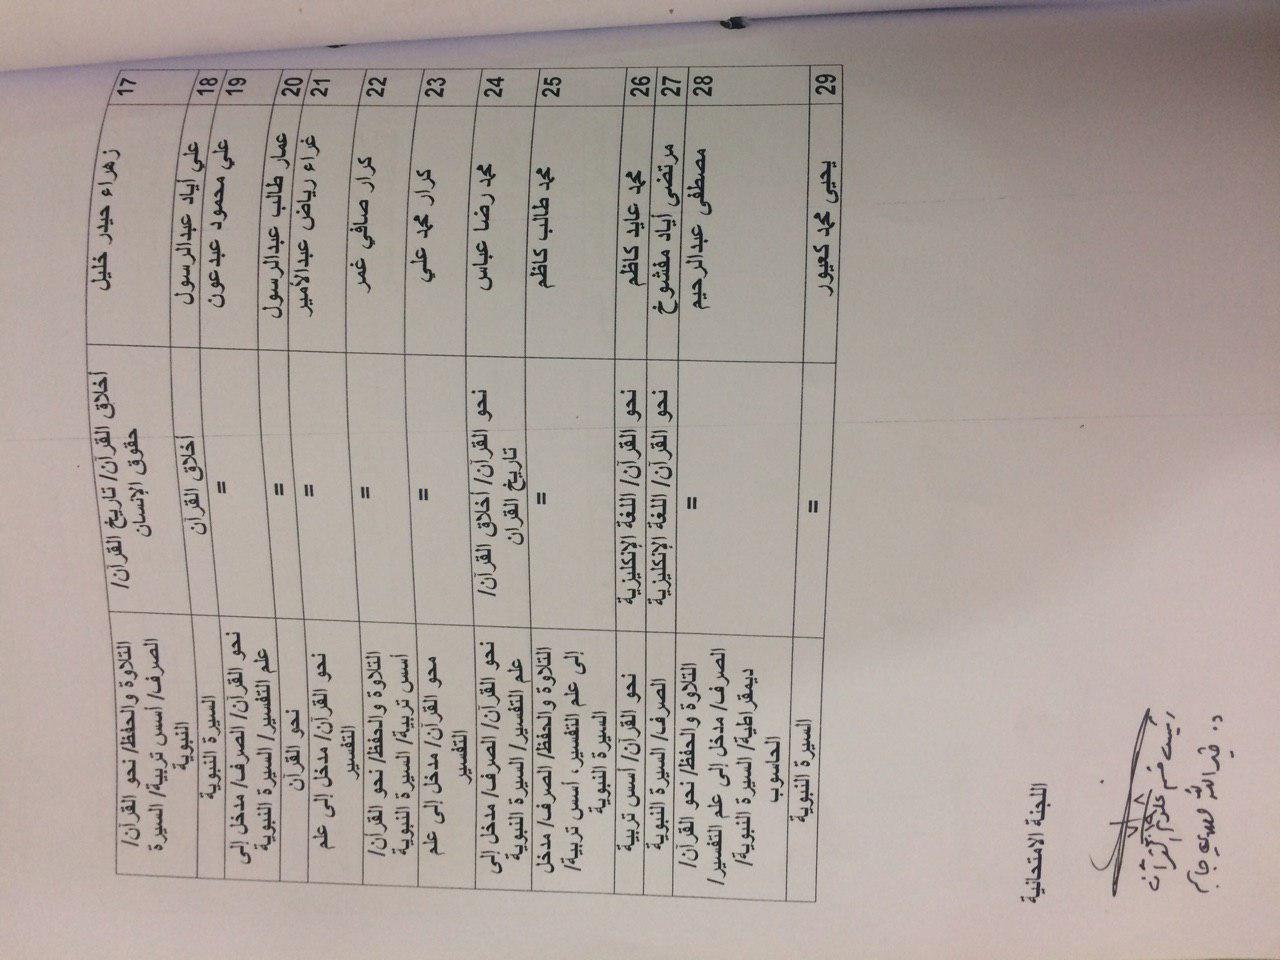 17 زهراء حيدر خليل أخلاق القرآن/ تاريخ القرآن/ التلاوة والحفظ/ نحو القرآن/
حقوق الإنسان الصرف/ أسس تربية/ السيرة
النبوية
18 علي أياد عبدالرسول أخلاق القرآن السيرة النبوية
19 علي محمود عبدعون = نحو القرآن/ الصرف/ مدخل إلى
علم التفسير/ السيرة النبوية
20 عمار طالب عبدالرسول = نحو القرآن
21 غراء رياض عبدالأمير = نحو القرآن/ مدخل إلى علم
التفسير
22 كرار صافي غمر = التلاوة والحفظ/ نحو القرآن/
أسس تربية/ السيرة النبوية
23 كرار محمد علي = محو القرآن/ مدخل إلى علم
التفسير
24 محمد رضا عباس نحو القرآن/ أخلاق القرآن/ نحو القرآن/ الصرف/ مدخل إلى
تاريخ القران علم التفسير/ السيرة النبوية
25 محمد طالب كاظم = التلاوة والحفظ/ الصرف/ مدخل
إلى علم التفسير، أسس تربية/
السيرة النبوية
26 محمد عايد كاظم نحو القرآن/ اللغة الإنكليزية نحو القرآن/ أسس تربية
27 مرتضى أياد مفشوخ نحو القرآن/ اللغة الإنكليزية الصرف/ السيرة النبوية
28 مصطفى عبدالرحيم = التلاوة والحفظ/ نحو القرآن/
الصرف/ مدخل إلى علم التفسير/
ديمقراطية/ السيرة النبوية/
الحاسوب
29 يحيى محمد كعيور = السيرة النبوية
اللجنة الامتحانية
رئيس قسم علوم القرآن